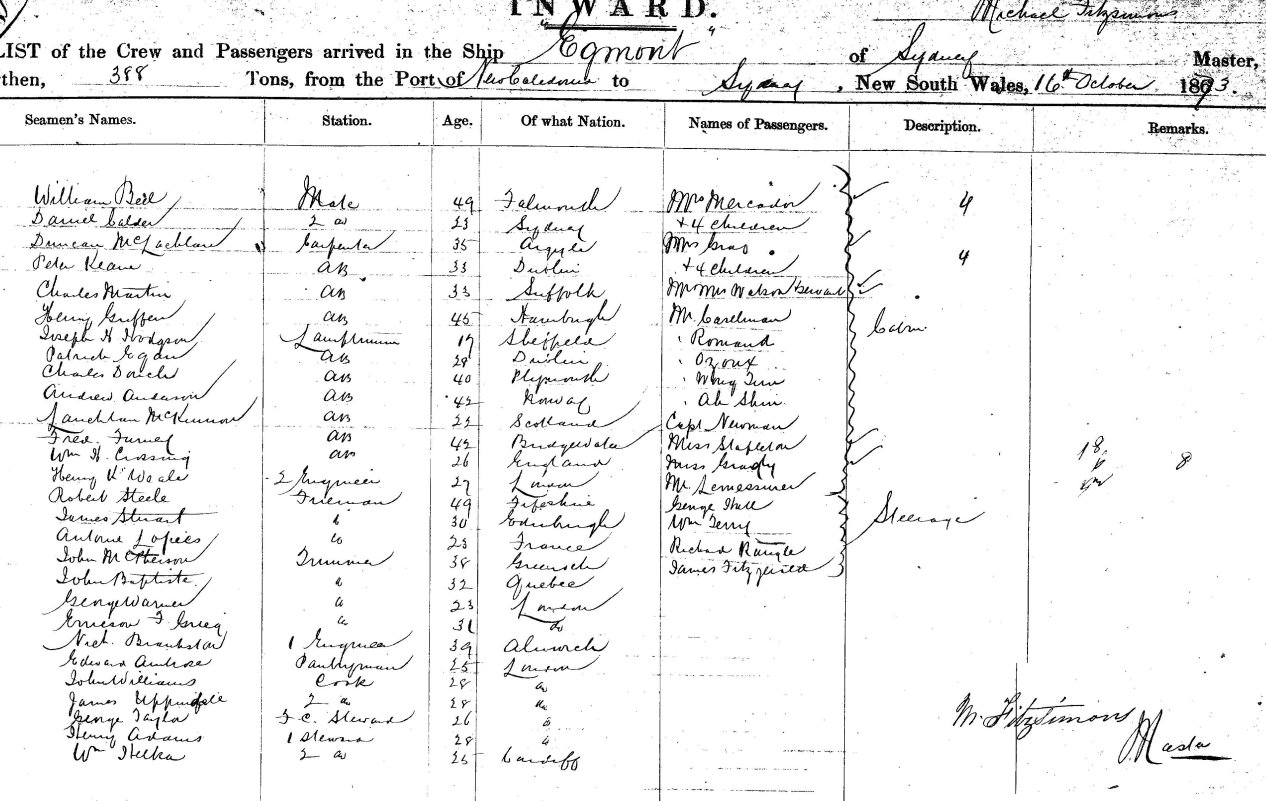 INWARD.
Michael Fitzsimons
LIST of the Crew and Passengers arrived in the Ship "Egmont" of Sydney Master,
then, 388 Tons, from the Port of New Caledonia to Sydney, New South Wales, 16th October 1893.
Seamen's Names. Station. Age. Of what Nation. Names of Passengers. Description. Remarks.
William Bell Mate 49 Falmouth Mrs Mercador 4
Daniel Calder 2 do 23 Sydney + 4 children
Duncan McLachlan Carpenter 35 Argyle Mrs Gray
Peter Keane AB 33 Dublin + 4 children 4
Charles Martin AB 33 Suffolk Mr Mrs Watson Servant
Henry Griffen AB 45 Hamburgh Mr
Joseph H Hodgson Lamptrimmer 19 Sheffield " Romand Cabin
Patrick Egan AB 28 Dublin " Ozoux
Charles AB 40 Plymouth "
Andrew Anderson AB 42 Norway " Ah Shin
Lauchlan McKinnon AB 22 Scotland Capt Newman
Fred. AB 42 Bridgewater Miss Stapleton
Wm H. Crossing AB 26 England Miss Grady 18 8
Henry 2 Engineer 27 London Mr Lemessurier
Robert Steele Fireman 49 Fifeshire George Hall
James Stuart " 30 Edinburgh Wm Terry Steerage
Antoine 23 France Richard
John McPherson Trimmer 38 Greenock James Fitzgerald
John Baptiste " 32 Quebec
George Warner " 23 London
F. " 31 do
Nich. 1 Engineer 39 Alnwick
Edward Ambrose Pantryman 25 London
John Williams Cook 28 do
James 2 do 28 do
George Taylor F C. Steward 26 "
Henry Adams 1 Steward 28 "
Wm 2 do 25 Cardiff
M. Fitzsimons
Master